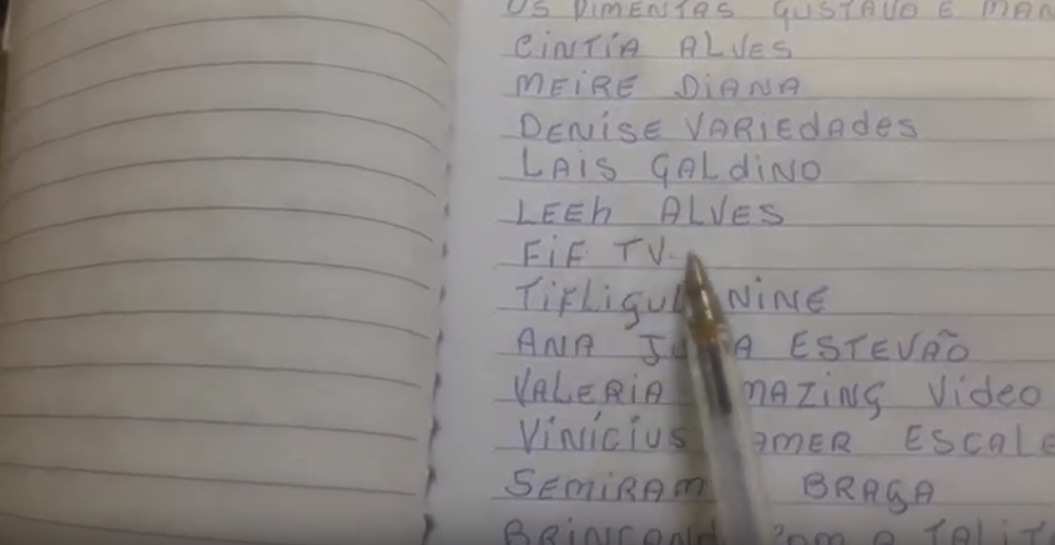 OS PIMENTAS GUSTAVO E MAN
CINTÍA ALVES
MEIRE DIANA
DENISE VARIEdAdes
LAIS GALdINO
LEEh ALVES
FIF TV
NINE
ANA ESTEVÃO
VALERIA MAZING Vídeo
VINÍCIUS AMER ESCALE
SEMIRAM BRAGA
A TALIT